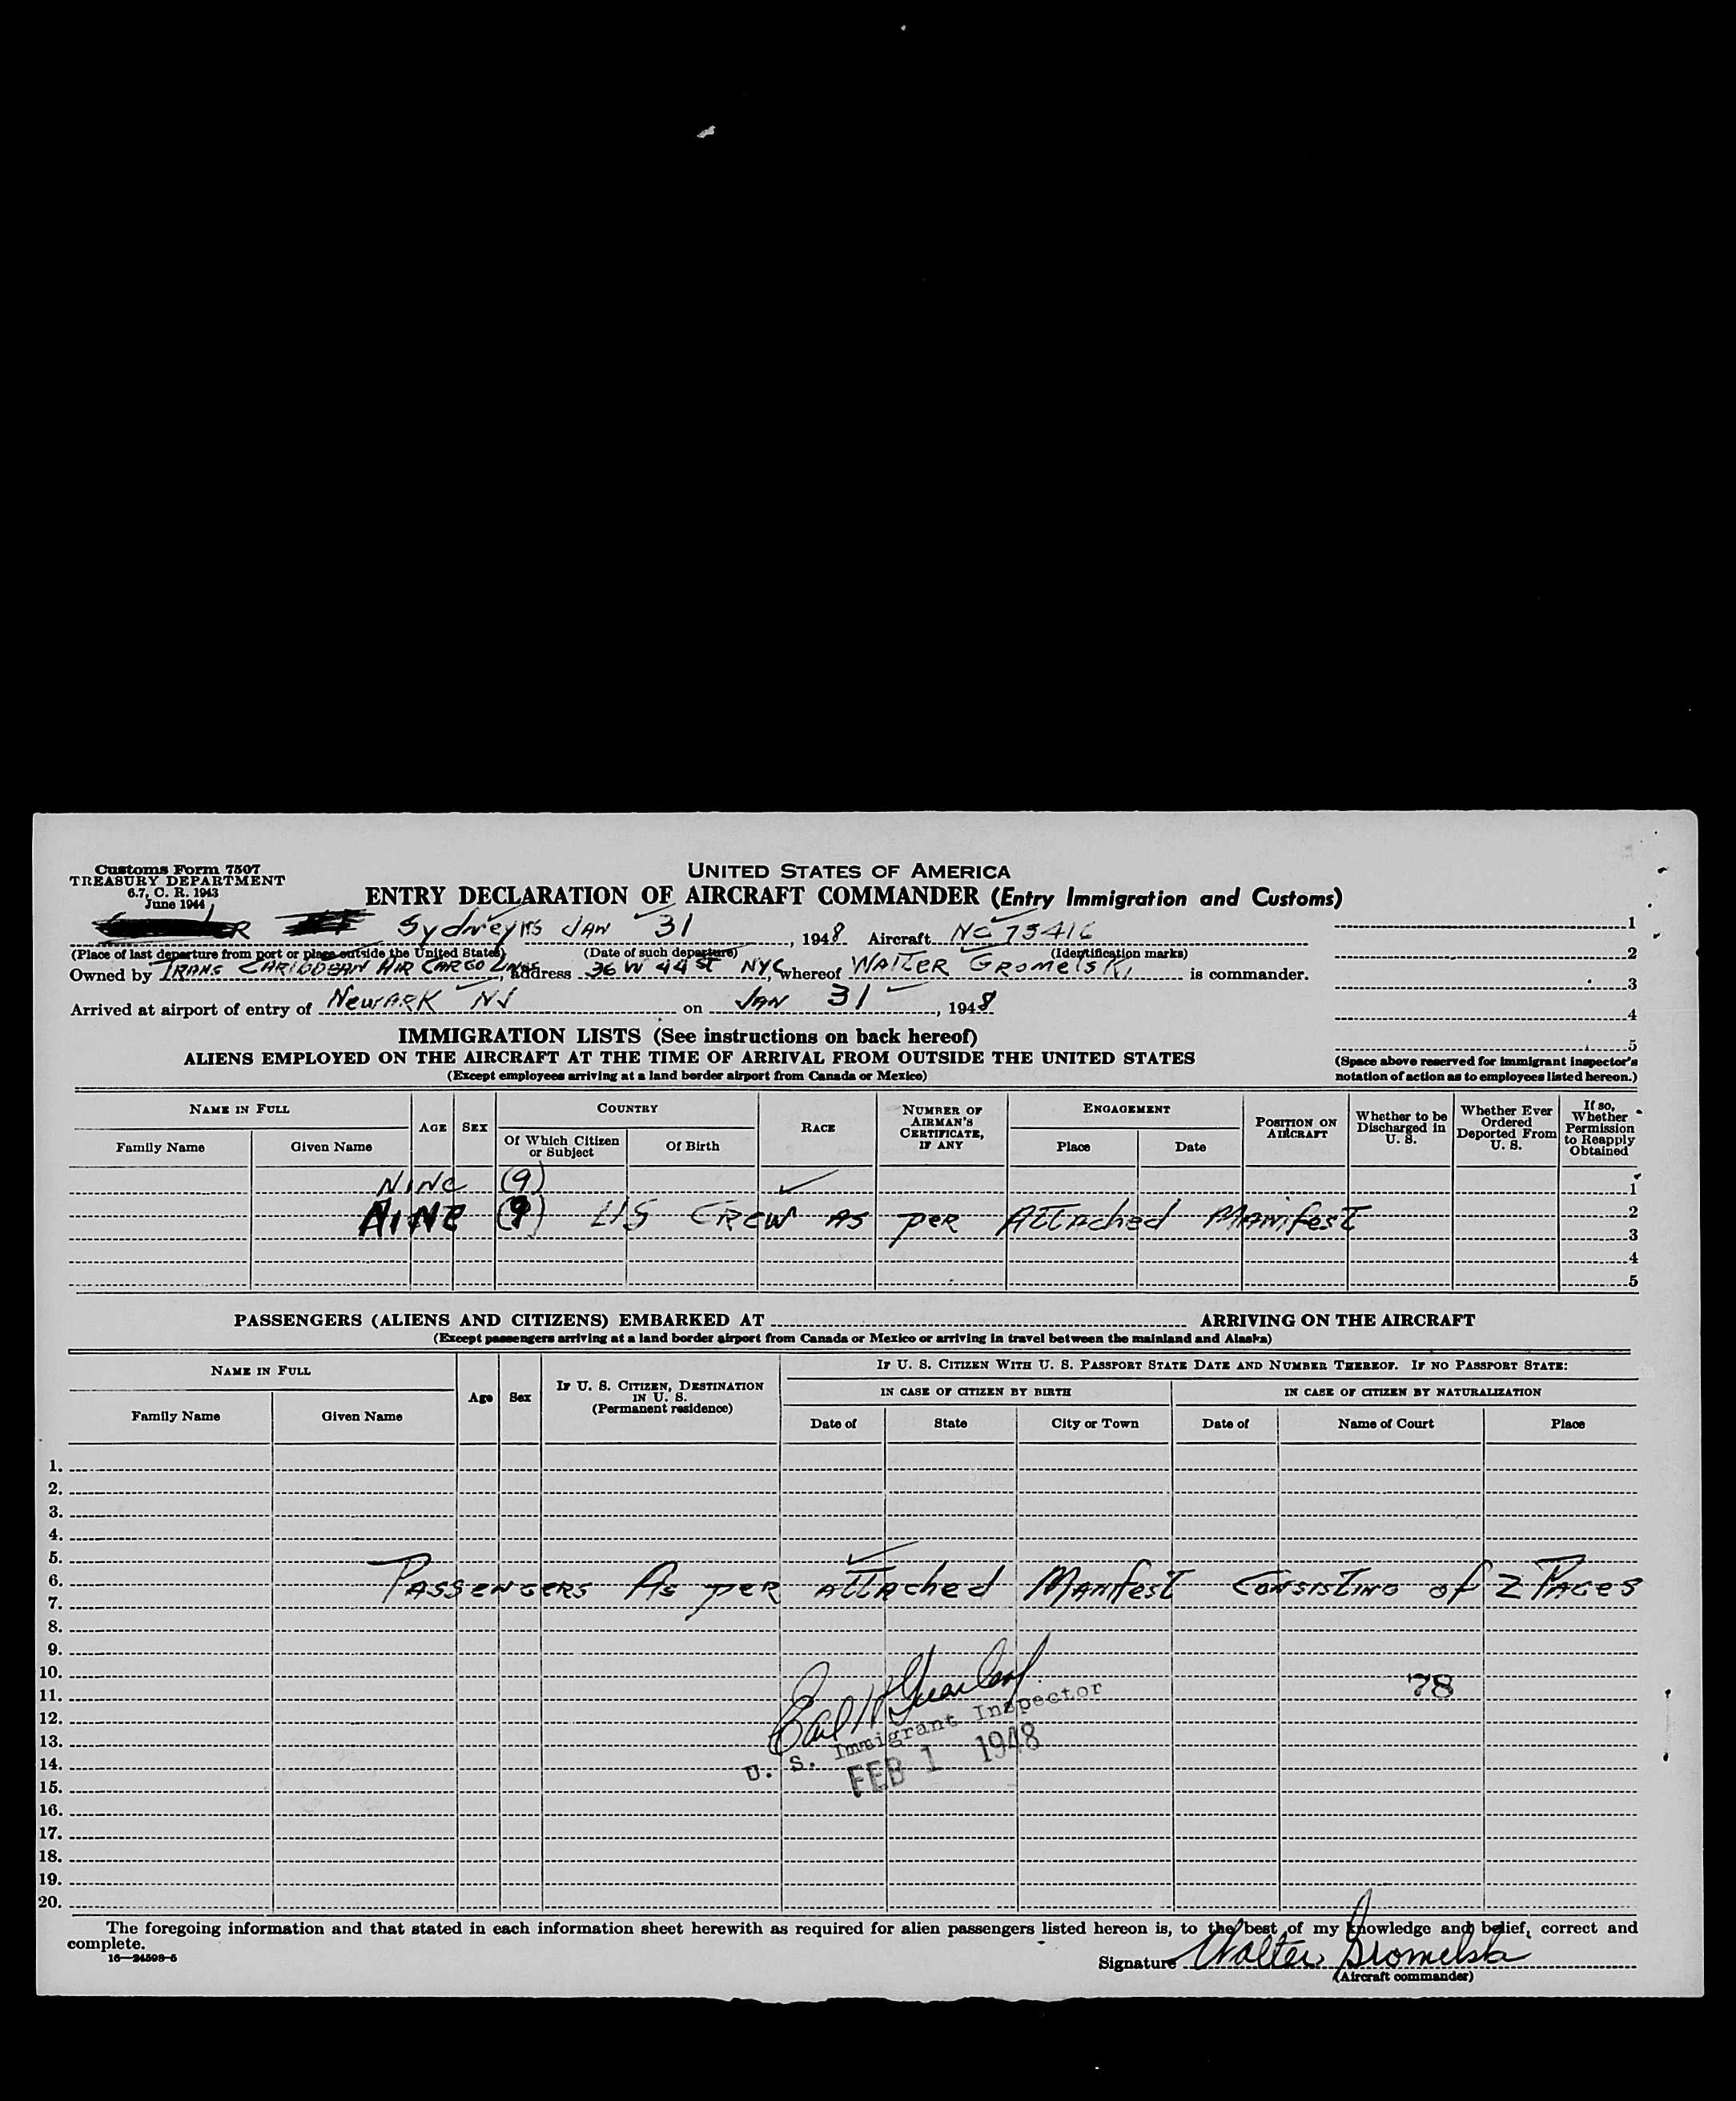 Customs Form 7507
TREASURY DEPARTMENT
6.7, C. R. 1943
June 1944
UNITED STATES OF AMERICA
ENTRY DECLARATION OF AIRCRAFT COMMANDER (Entry Immigration and Customs)
Sydney NS JAN 31, 1948 Aircraft NC 75416
(Place of last departure from port or place outside the United States) (Date of such departure) (Identification marks)
Owned by TRANS CARIBBEAN AIR CARGO LINES, address 36 W 44 St NYC, whereof WALTER GROMELSKI is commander.
Arrived at airport of entry of NEWARK NJ on JAN 31, 1948
1
2
3
4
5
(Space above reserved for immigrant inspector's
notation of action as to employees listed hereon.)
IMMIGRATION LISTS (See instructions on back hereof)
ALIENS EMPLOYED ON THE AIRCRAFT AT THE TIME OF ARRIVAL FROM OUTSIDE THE UNITED STATES
(Except employees arriving at a land border airport from Canada or Mexico)
NAME IN FULL
Family Name Given Name
AGE SEX
COUNTRY
Of Which Citizen or Subject Of Birth
RACE
NUMBER OF AIRMAN'S CERTIFICATE, IF ANY
ENGAGEMENT
Place Date
POSITION ON AIRCRAFT
Whether to be Discharged in U. S.
Whether Ever Ordered Deported From U. S.
If so, Whether Permission to Reapply Obtained
NINE (9) 1
NINE (9) US CREW AS PER ATTACHED MANIFEST 2
3
4
5
PASSENGERS (ALIENS AND CITIZENS) EMBARKED AT ARRIVING ON THE AIRCRAFT
(Except passengers arriving at a land border airport from Canada or Mexico or arriving in travel between the mainland and Alaska)
NAME IN FULL
Family Name Given Name
Age Sex
IF U. S. CITIZEN, DESTINATION IN U. S. (Permanent residence)
IF U. S. CITIZEN WITH U. S. PASSPORT STATE DATE AND NUMBER THEREOF. IF NO PASSPORT STATE:
IN CASE OF CITIZEN BY BIRTH IN CASE OF CITIZEN BY NATURALIZATION
Date of State City or Town Date of Name of Court Place
1.
2.
3.
4.
5.
6. PASSENGERS AS PER ATTACHED MANIFEST CONSISTING OF 2 PAGES
7.
8.
9.
10.
11. 78
12.
13. U. S. Immigrant Inspector
14. FEB 1 1948
15.
16.
17.
18.
19.
20.
The foregoing information and that stated in each information sheet herewith as required for alien passengers listed hereon is, to the best of my knowledge and belief, correct and
complete.
16—24598-5
Signature Walter Gromelski
(Aircraft commander)